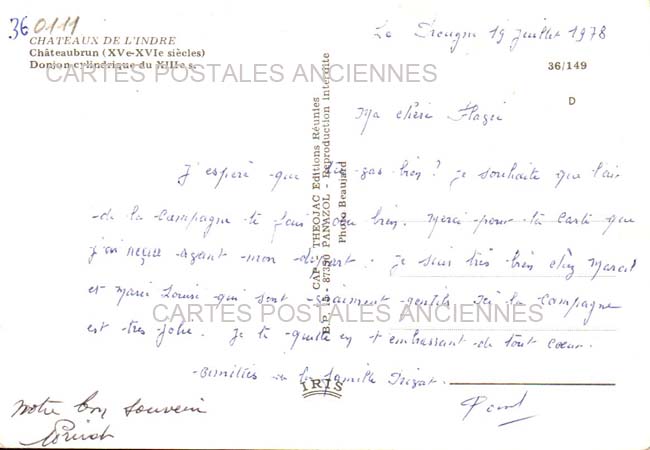 36 0111
CHATEAUX DE L'INDRE
Châteaubrun (XVe-XVIe siècles)
Donjon cylindrique du XIIIe s.
CARTES POSTALES ANCIENNES
Le 19 juillet 1978
36/149
D
Ma chère
J'espère que tu vas bien? je souhaite que l'air
de la campagne te fais du bien. Merci pour ta carte que
j'ai reçue avant mon départ. Je suis très bien chez Marcel
et Marie Louise qui sont vraiment gentils. Ici la campagne
est très jolie. Je te quitte en t'embrassant de tout coeur.
Amitiés à la famille
CAP - THEOJAC Editions Réunies
87350 PANAZOL - Reproduction interdite
Photo Beaujard
CARTES POSTALES ANCIENNES
IRIS
notre bon souvenir